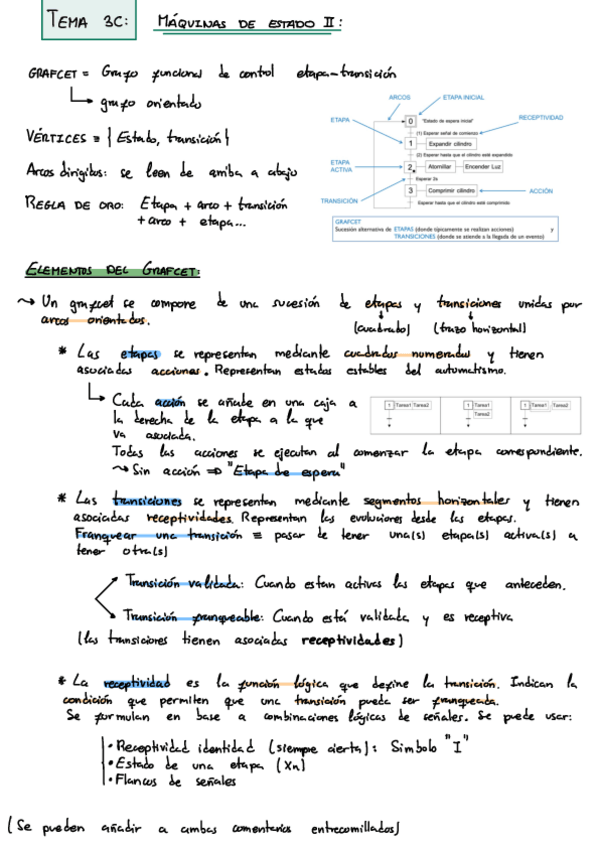 TEMA 3C: MÁQUINAS DE ESTADO II:
GRAFCET = Grafo funcional de control etapa-transición
grafo orientado
VÉRTICES ≡ { Estado, transición }
Arcos dirigidos: se leen de arriba a abajo
REGLA DE ORO: Etapa + arco + transición
+ arco + etapa...
ARCOS
ETAPA INICIAL
ETAPA
0 "Estado de espera inicial"
RECEPTIVIDAD
(1) Esperar señal de comienzo
1 Expandir cilindro
(2) Esperar hasta que el cilindro esté expandido
ETAPA
ACTIVA
2 Atornillar Encender Luz
Esperar 2s
3 Comprimir cilindro
ACCIÓN
TRANSICIÓN
Esperar hasta que el cilindro esté comprimido
GRAFCET
Sucesión alternativa de ETAPAS (donde típicamente se realizan acciones) y
TRANSICIONES (donde se atiende a la llegada de un evento)
ELEMENTOS DEL GRAFCET:
Un grafcet se compone de una sucesión de etapas y transiciones unidas por
arcos orientados.
(cuadrado) (trazo horizontal)
* Las etapas se representan mediante cuadrados numerados y tienen
asociadas acciones. Representan estados estables del automatismo.
Cada acción se añade en una caja a
la derecha de la etapa a la que
va asociada.
1 Tarea1 Tarea2
1 Tarea1
Tarea2
1 Tarea1 Tarea2
Todas las acciones se ejecutan al comenzar la etapa correspondiente.
Sin acción ⇒ "Etapa de espera"
* Las transiciones se representan mediante segmentos horizontales y tienen
asociadas receptividades. Representan las evoluciones desde las etapas.
Franquear una transición ≡ pasar de tener una(s) etapa(s) activa(s) a
tener otra(s)
Transición validada: Cuando estan activas las etapas que anteceden.
Transición franqueable: Cuando está validada y es receptiva
(las transiciones tienen asociadas receptividades)
* La receptividad es la función lógica que define la transición. Indican la
condición que permiten que una transición pueda ser franqueada.
Se formulan en base a combinaciones lógicas de señales. Se puede usar:
• Receptividad identidad (siempre cierta): Simbolo "I"
• Estado de una etapa (Xn)
• Flancos de señales
(Se pueden añadir a ambas comentarios entrecomillados)